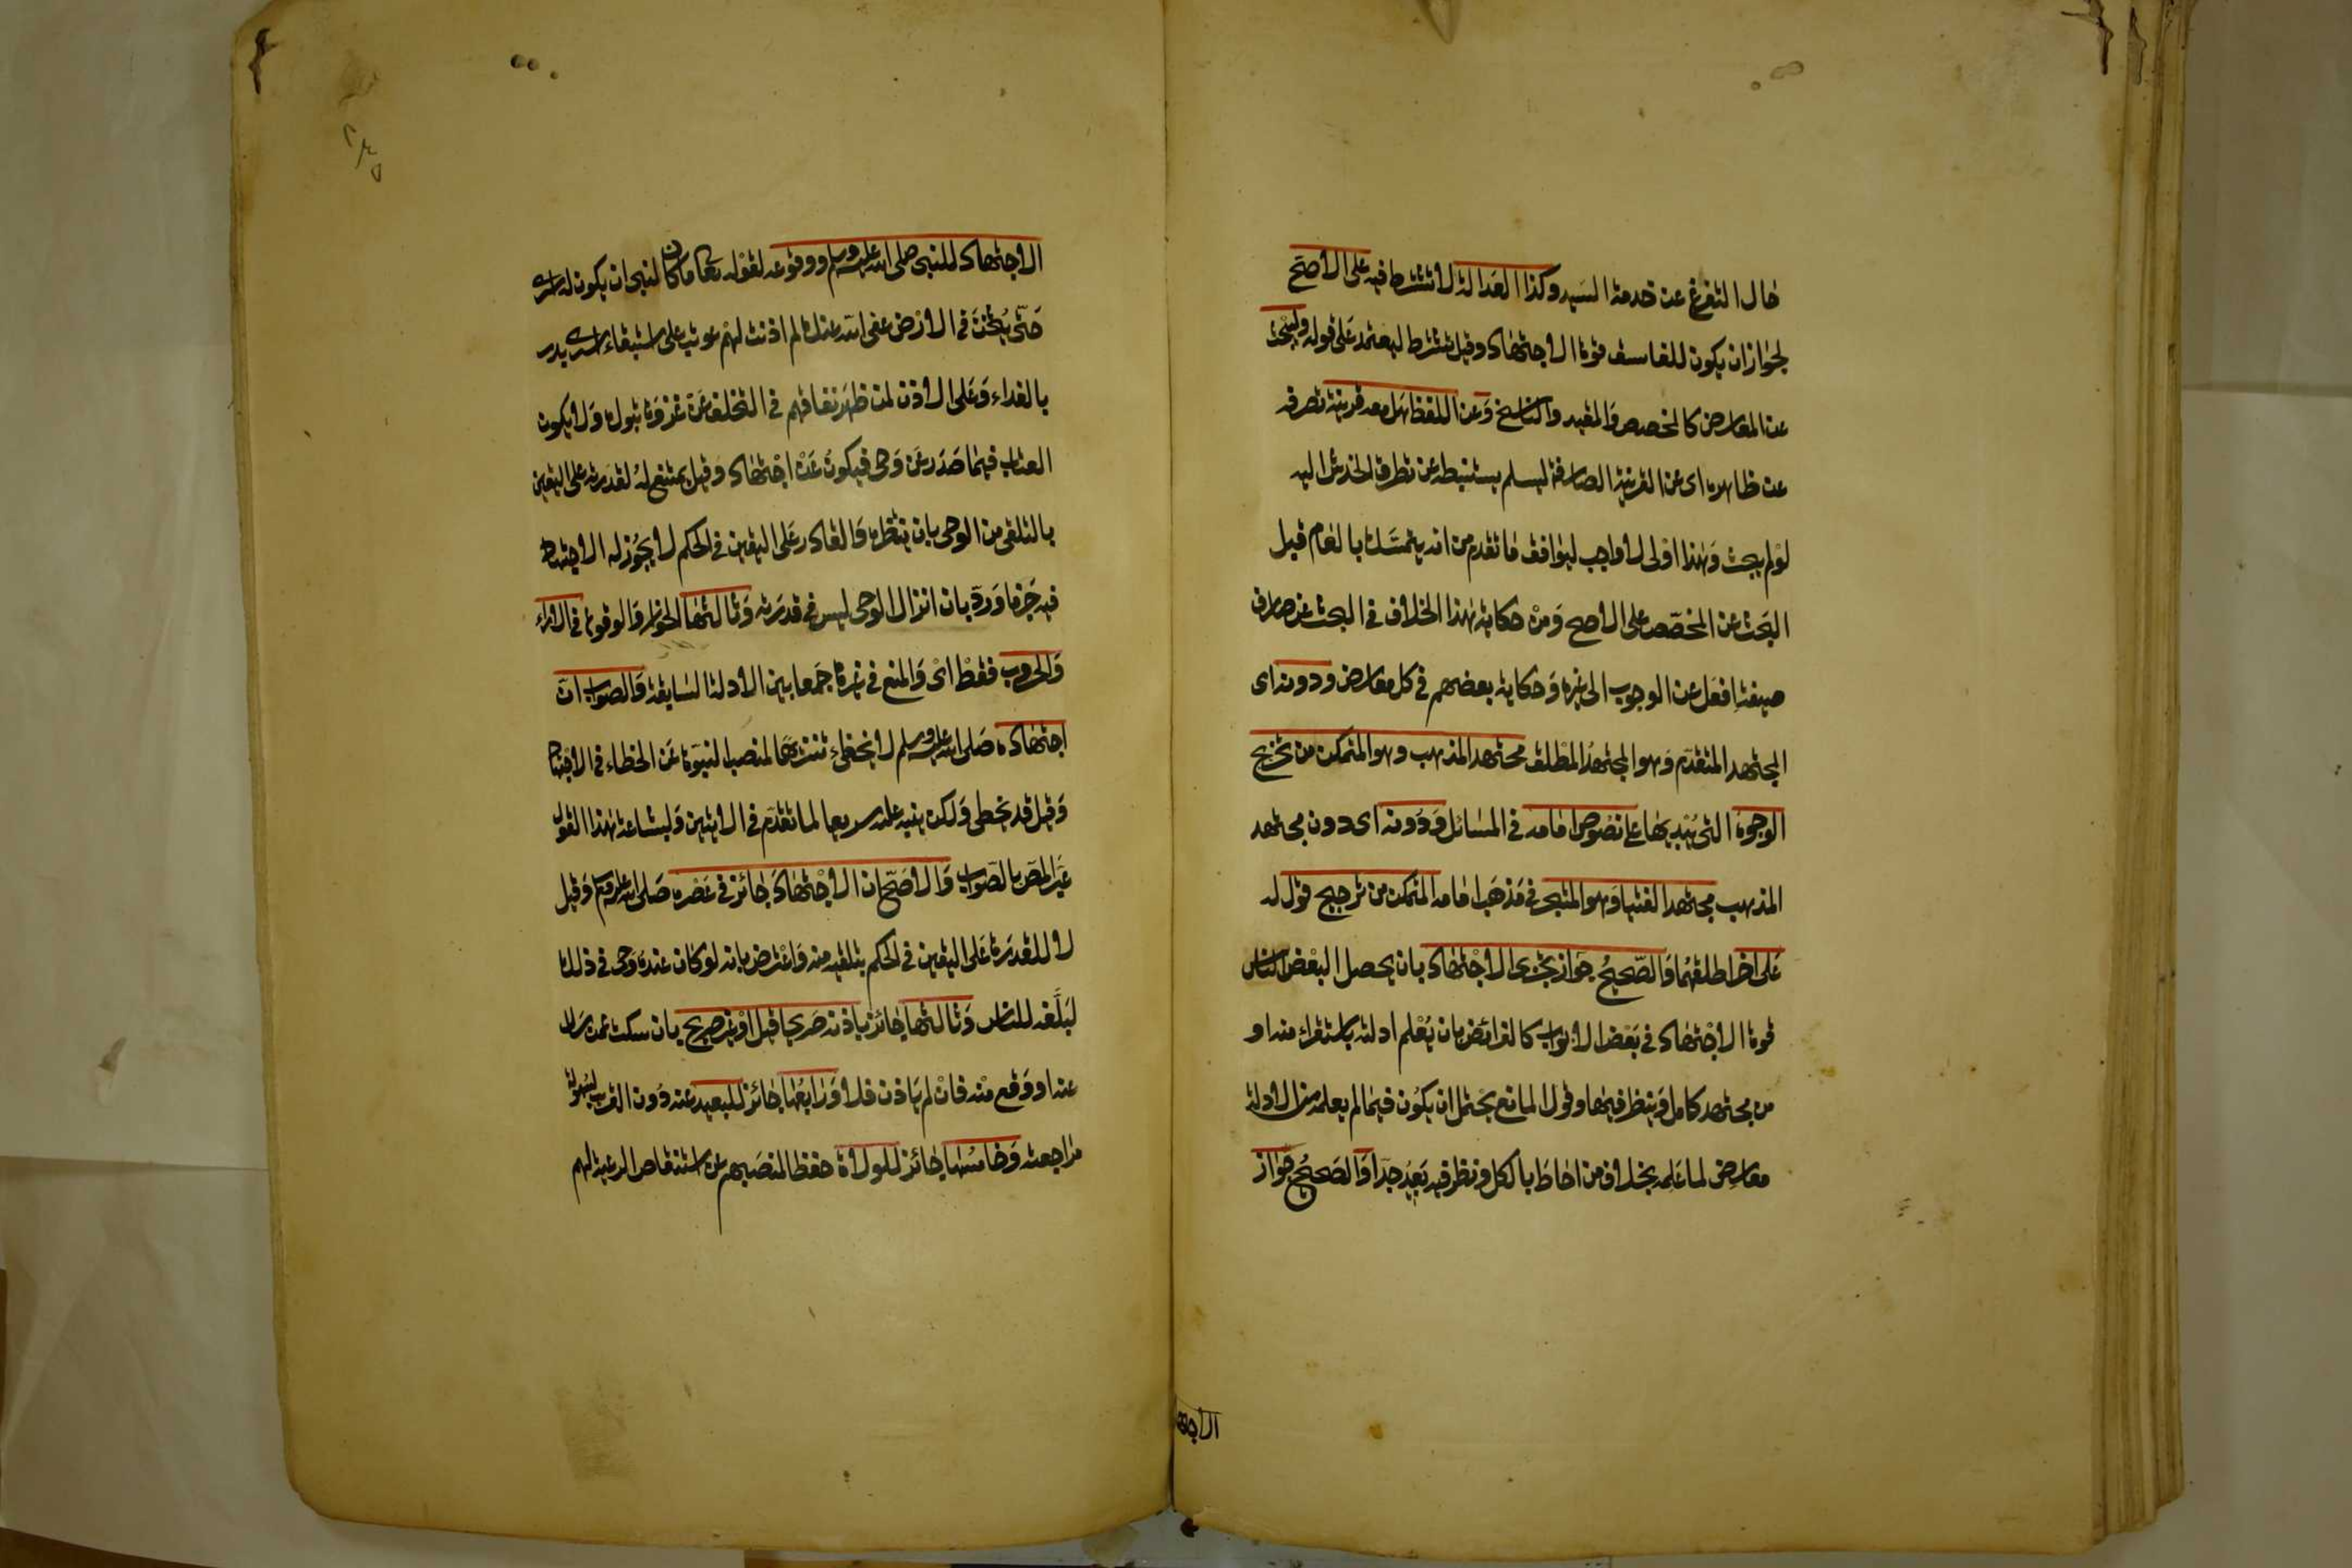 حال التفرغ عن خدمة السيد وكذا العدالة لا تشترط فيه على الاصح
لجواز ان يكون للفاسق قوة الاجتهاد وقيل تشترط ليعتمد على قوله وليبحث
عن المعارض كالمخصص والمقيد والناسخ وعن اللفظ هل معه قرينة تصرفه
عن ظاهره اى عن القرينة الصارفة ليسلم يستنبطه عن تطرق الخدش اليه
لو لم يبحث وهذا اولى لا واجب ليوافق ما تقدم من انه يتمسك بالعام قبل
البحث عن المخصص على الاصح ومن حكاية هذا الخلاف فى البحث عن صارف
صيغة افعل عن الوجوب الى غيره وحكاية بعضهم فى كل معارض ودونه اى
المجتهد المتقدم وهو المجتهد المطلق مجتهد المذهب وهو المتمكن من تخريج
الوجوه التى يبديها على نصوص امامه فى المسائل ودونه اى دون مجتهد
المذهب مجتهد الفتيا وهو المتبحر فى مذهب امامه المتمكن من ترجيح قول له
على اخر اطلقهما والصحيح جواز تجزى الاجتهاد بان يحصل لبعض الناس
قوة الاجتهاد فى بعض الابواب كالفرائض بان يعلم ادلته باستقراء منه او
من مجتهد كامل وينظر فيها وقول المانع يحتمل ان يكون فيما لم يعلمه من الادلة
معارض لما علمه بخلاف من احاط بالكل ونظر فيه بعيد جدا والصحيح جواز
الاجتها
الاجتهاد للنبى صلى الله عليه وسلم ووقوعه لقوله تعا ما كان لنبى ان يكون له اسرى
حتى يثخن فى الارض عفى الله عنك لم اذنت لهم عوتب على استبقاء اسرى بدر
بالفداء وعلى الاذن لمن ظهر نفاقهم فى التخلف عن غزوة تبوك ولا يكون
العتاب فيما صدر عن وحى فيكون عن اجتهاد وقيل يمتنع له لقدرته على اليقين
بالتلقى من الوحى بان ينتظره والقادر على اليقين فى الحكم لا يجوز له الاجتهاد
فيه جزما ورد بان انزال الوحى ليس فى قدرته وثالثها الجواز والوقوع فى الاراء
والحروب فقط اى والمنع فى غيره جمعا بين الادلة السابقة والصواب ان
اجتهاده صلى الله عليه وسلم لا يخطئ تنزيها لمنصب النبوة عن الخطاء فى الاجتهاد
وقيل قد يخطى ولكن ينبه عليه سريعا لما تقدم فى الايتين ولبشاعة هذا القول
عبر المص بالصواب والاصح ان الاجتهاد جائز فى عصره صلى الله عليه وسلم وقيل
لا للقدرة على اليقين فى الحكم بتلقيه منه واعترض بانه لو كان عنده وحى فى ذلك
لبلغه للناس وثالثها جائز باذنه صريحا قيل او غير صريح بان سكت عمن سال
عنه او وقع منه فان لم ياذن فلا ورابعها جائز للبعيد عنه دون القريب لسهولة
مراجعته وخامسها جائز للولاة حفظا لمنصبهم عن استنقاص الرعية لهم